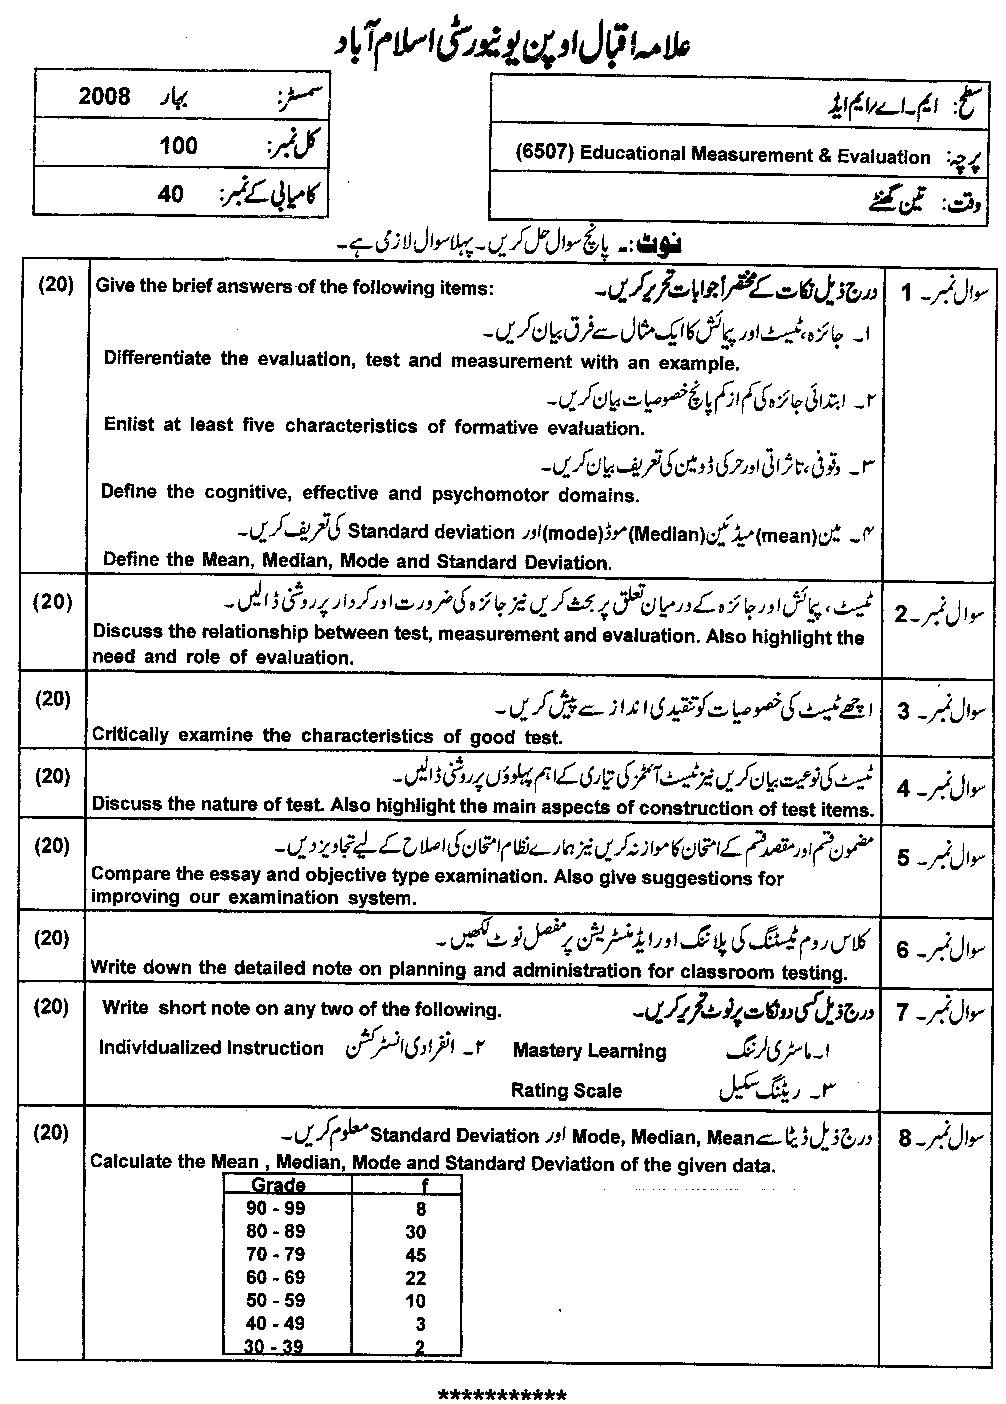 علامہ اقبال اوپن یونیورسٹی اسلام آباد
سطح: ایم۔اے/ایم ایڈ
پرچہ: (6507) Educational Measurement & Evaluation
وقت: تین گھنٹے
سمسٹر: بہار 2008
کل نمبر: 100
کامیابی کے نمبر: 40
نوٹ:۔ پانچ سوال حل کریں۔ پہلا سوال لازمی ہے۔
سوال نمبر۔ 1 درج ذیل نکات کے مختصراً جوابات تحریر کریں۔ Give the brief answers of the following items: (20)
۱۔ جائزہ، ٹیسٹ اور پیمائش کا ایک مثال سے فرق بیان کریں۔
Differentiate the evaluation, test and measurement with an example.
۲۔ ابتدائی جائزہ کی کم از کم پانچ خصوصیات بیان کریں۔
Enlist at least five characteristics of formative evaluation.
۳۔ وقوفی، تاثراتی اور حرکی ڈومین کی تعریف بیان کریں۔
Define the cognitive, effective and psychomotor domains.
۴۔ مین(mean) میڈئین(Median) موڈ(mode) اور Standard deviation کی تعریف کریں۔
Define the Mean, Median, Mode and Standard Deviation.
سوال نمبر۔ 2 ٹیسٹ، پیمائش اور جائزہ کے درمیان تعلق پر بحث کریں نیز جائزہ کی ضرورت اور کردار پر روشنی ڈالیں۔ (20)
Discuss the relationship between test, measurement and evaluation. Also highlight the
need and role of evaluation.
سوال نمبر۔ 3 اچھے ٹیسٹ کی خصوصیات کو تنقیدی انداز سے پیش کریں۔ (20)
Critically examine the characteristics of good test.
سوال نمبر۔ 4 ٹیسٹ کی نوعیت بیان کریں نیز ٹیسٹ آئٹمز کی تیاری کے اہم پہلوؤں پر روشنی ڈالیں۔ (20)
Discuss the nature of test. Also highlight the main aspects of construction of test items.
سوال نمبر۔ 5 مضمون قسم اور مقصد قسم کے امتحان کا موازنہ کریں نیز ہمارے نظام امتحان کی اصلاح کے لیے تجاویز دیں۔ (20)
Compare the essay and objective type examination. Also give suggestions for
improving our examination system.
سوال نمبر۔ 6 کلاس روم ٹیسٹنگ کی پلاننگ اور ایڈمنسٹریشن پر مفصل نوٹ لکھیں۔ (20)
Write down the detailed note on planning and administration for classroom testing.
سوال نمبر۔ 7 درج ذیل کسی دو نکات پر نوٹ تحریر کریں۔ Write short note on any two of the following. (20)
۱۔ ماسٹری لرننگ Mastery Learning ۲۔ انفرادی انسٹرکشن Individualized Instruction
۳۔ ریٹنگ سکیل Rating Scale
سوال نمبر۔ 8 درج ذیل ڈیٹا سے Mode, Median, Mean اور Standard Deviation معلوم کریں۔ (20)
Calculate the Mean , Median, Mode and Standard Deviation of the given data.
Grade f
90 - 99 8
80 - 89 30
70 - 79 45
60 - 69 22
50 - 59 10
40 - 49 3
30 - 39 2
***********